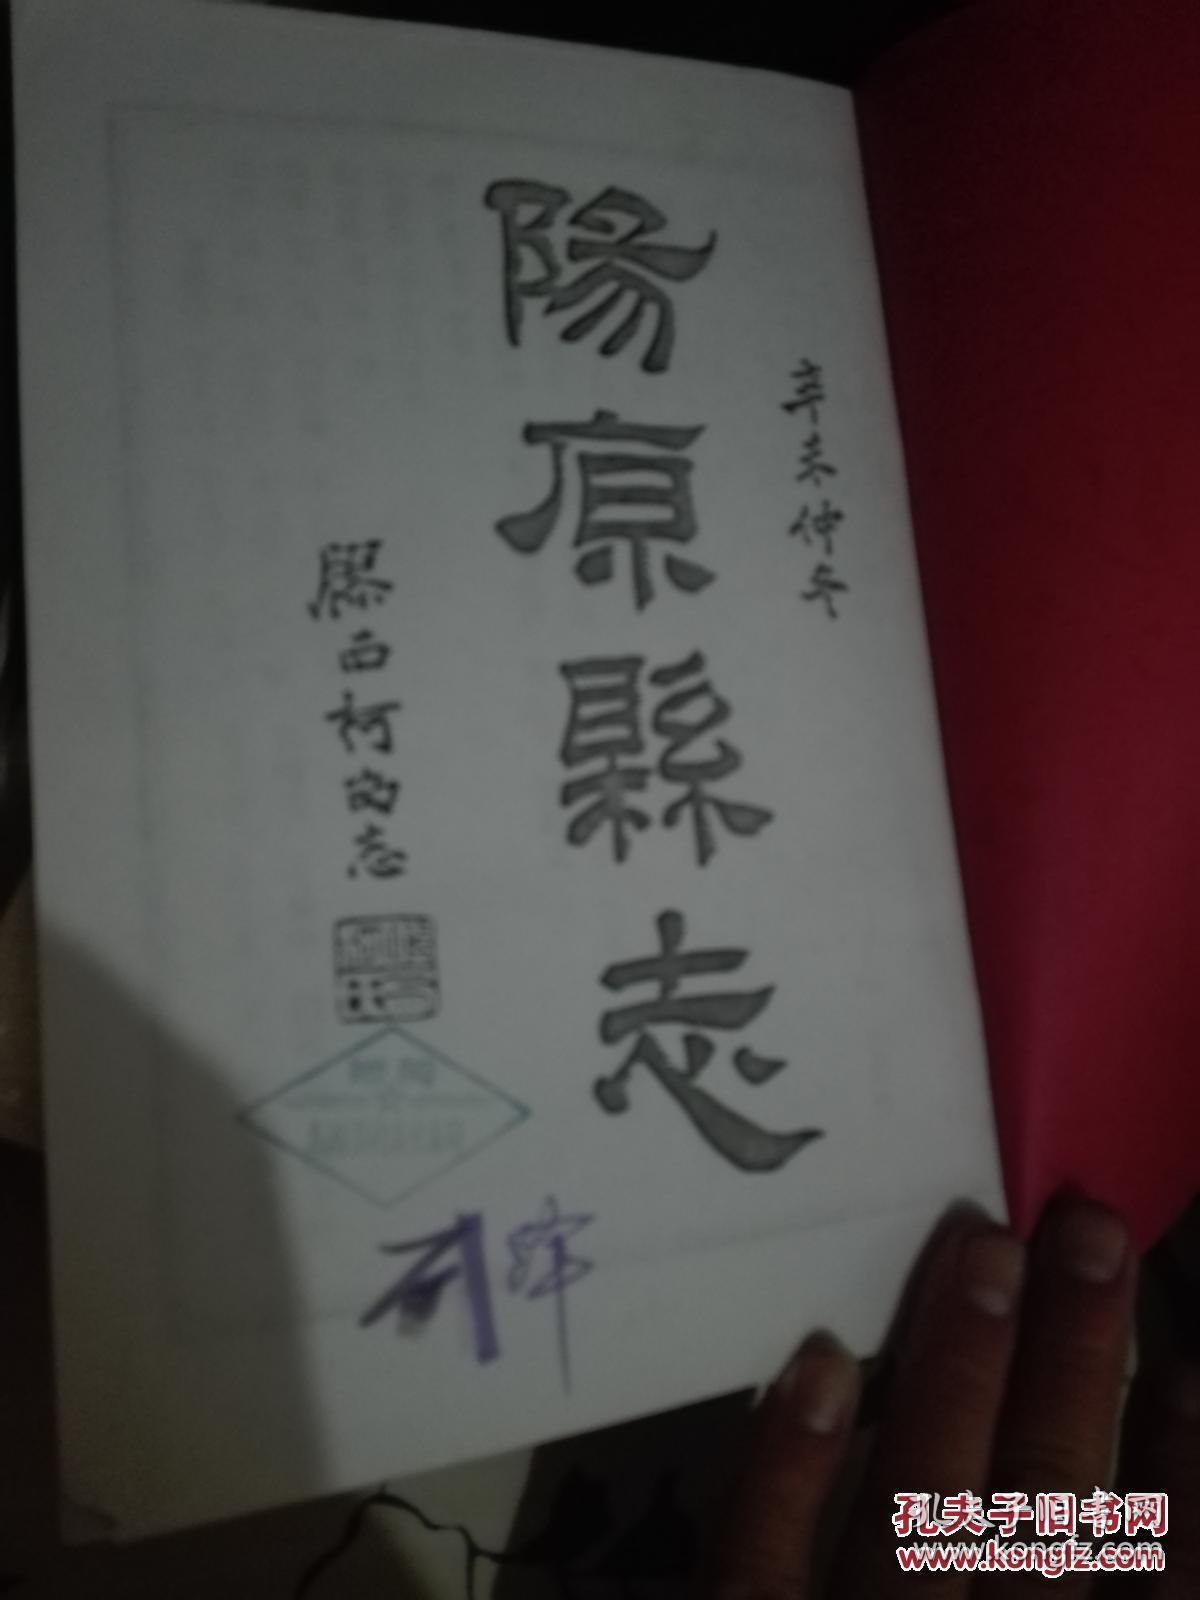 辛未仲冬
陽原縣志
膠西柯尚志
孔夫子旧书网
www.kongfz.com